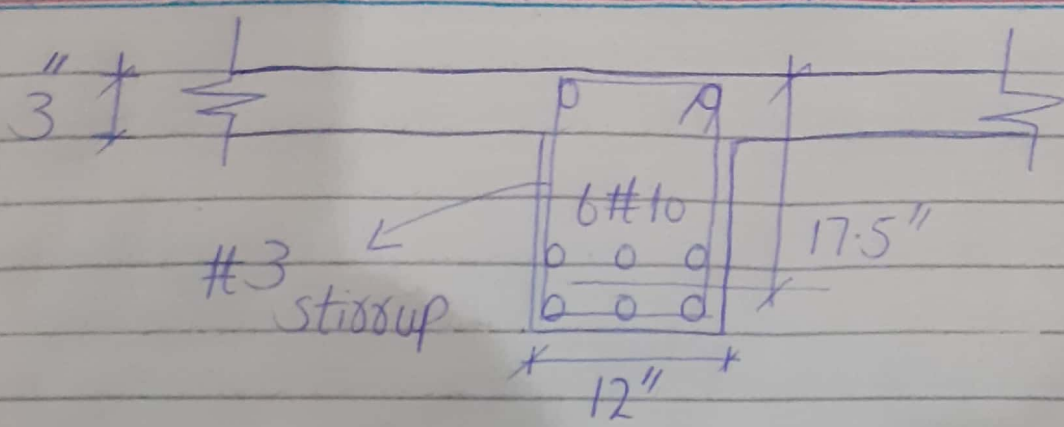 3"
6#10
17.5"
#3
stirrup
12"